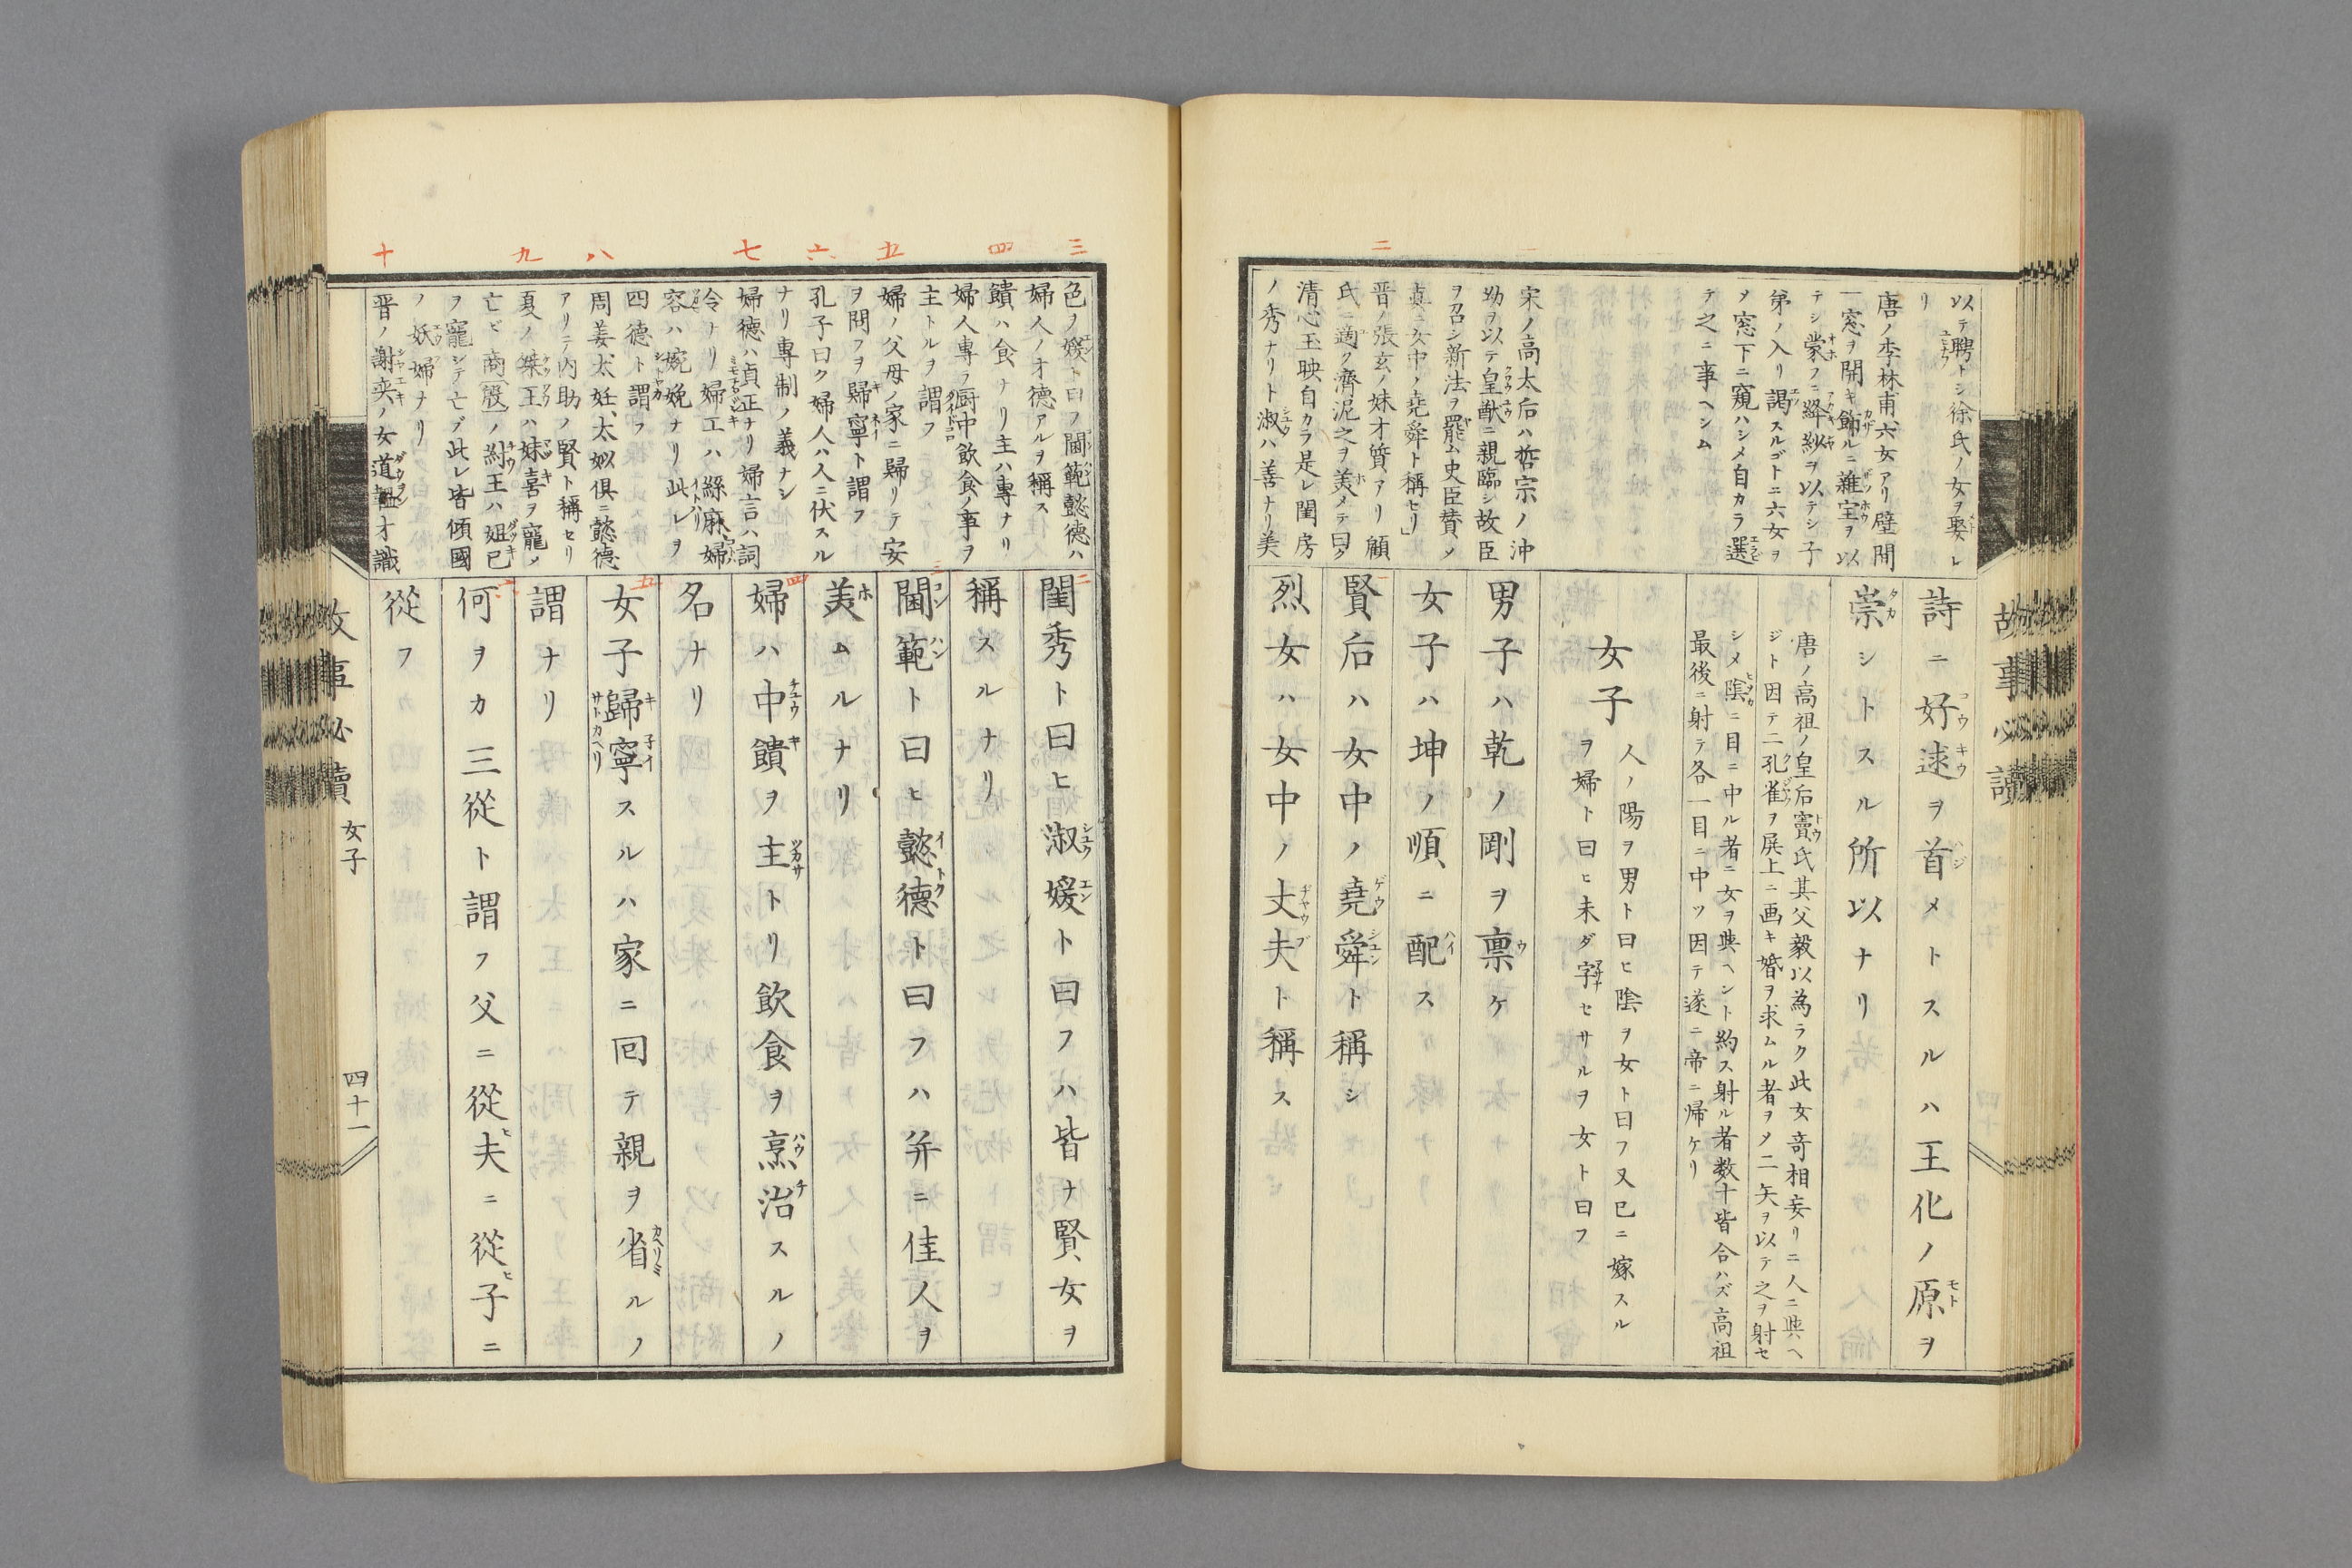 以テ聘トシ徐氏ノ女ヲ娶レ
リ
唐ノ李林甫六女アリ壁間
一窓ヲ開キ飾ルニ雑宝ヲ以
テシ蒙フニ絳紗ヲ以テシ子
弟ノ入リ謁スルゴトニ六女ヲ
〆窓下ニ窺ハシメ自カラ選
テ之ニ事ヘシム
宋ノ高太后ハ哲宗ノ沖
幼ヲ以テ皇猷ニ親臨シ故臣
ヲ召シ新法ヲ罷ム史臣賛〆
真ニ女中ノ堯舜ト稱セリ」
晋ノ張玄ノ妹才質アリ顧
氏ニ適ク濟泥之ヲ美メテ曰ク
清心玉映自カラ是レ閨房
ノ秀ナリト淑ハ善ナリ美
詩ニ好逑ヲ首メトスルハ王化ノ原ヲ
崇シトスル所以ナリ
唐ノ高祖ノ皇后竇氏其父毅以為ラク此女竒相妄リニ人ニ與ヘ
ジト因テ二孔雀ヲ屏上ニ画キ婚ヲ求ムル者ヲ〆二矢ヲ以テ之ヲ射セ
シメ陰ニ目ニ中ル者ニ女ヲ與ヘント約ス射ル者数十皆合ハズ高祖
最後ニ射テ各一目ニ中ツ因テ遂ニ帝ニ帰ケリ
女子
人ノ陽ヲ男ト曰ヒ陰ヲ女ト曰フ又已ニ嫁スル
ヲ婦ト曰ヒ未ダ字セサルヲ女ト曰フ
男子ハ乾ノ剛ヲ禀ケ
女子ハ坤ノ順ニ配ス
賢后ハ女中ノ堯舜ト稱シ
烈女ハ女中ノ丈夫ト稱ス
故事必讀
色ヲ媛ト曰フ閫範懿德ハ
婦人ノ才德アルヲ稱ス
饋ハ食ナリ主ハ專ナリ
婦人專ラ厨中飲食ノ事ヲ
主トルヲ謂フ
婦ノ父母ノ家ニ歸リテ安
ヲ問フヲ歸寧ト謂フ
孔子曰ク婦人ハ人ニ伏スル
ナリ專制ノ義ナシ
婦德ハ貞正ナリ婦言ハ詞
令ナリ婦工ハ絲麻婦
容ハ婉娩ナリ此レヲ
四德ト謂フ
周姜太妊太姒俱ニ懿德
アリニ内助ノ賢ト稱セリ
夏ノ桀王ハ妹喜ヲ寵〆
亡ビ商(殷)ノ紂王ハ妲已
ヲ寵シテ亡ブ此レ皆傾國
ノ妖婦ナリ
晋ノ謝奕ノ女道韞才識
閨秀ト曰ヒ淑媛ト曰フハ皆ナ賢女ヲ
稱スルナリ
閫範ト曰ヒ懿德ト曰フハ并ニ佳人ヲ
美ムルナリ
婦ハ中饋ヲ主トリ飲食ヲ烹治スルノ
名ナリ
女子歸寧スルハ家ニ囘テ親ヲ省ルノ
謂ナリ
何ヲカ三從ト謂フ父ニ從ヒ夫ニ從ヒ子ニ
從フ
故事必讀
女子
四十一
三 四 五 六 七 八 九 十